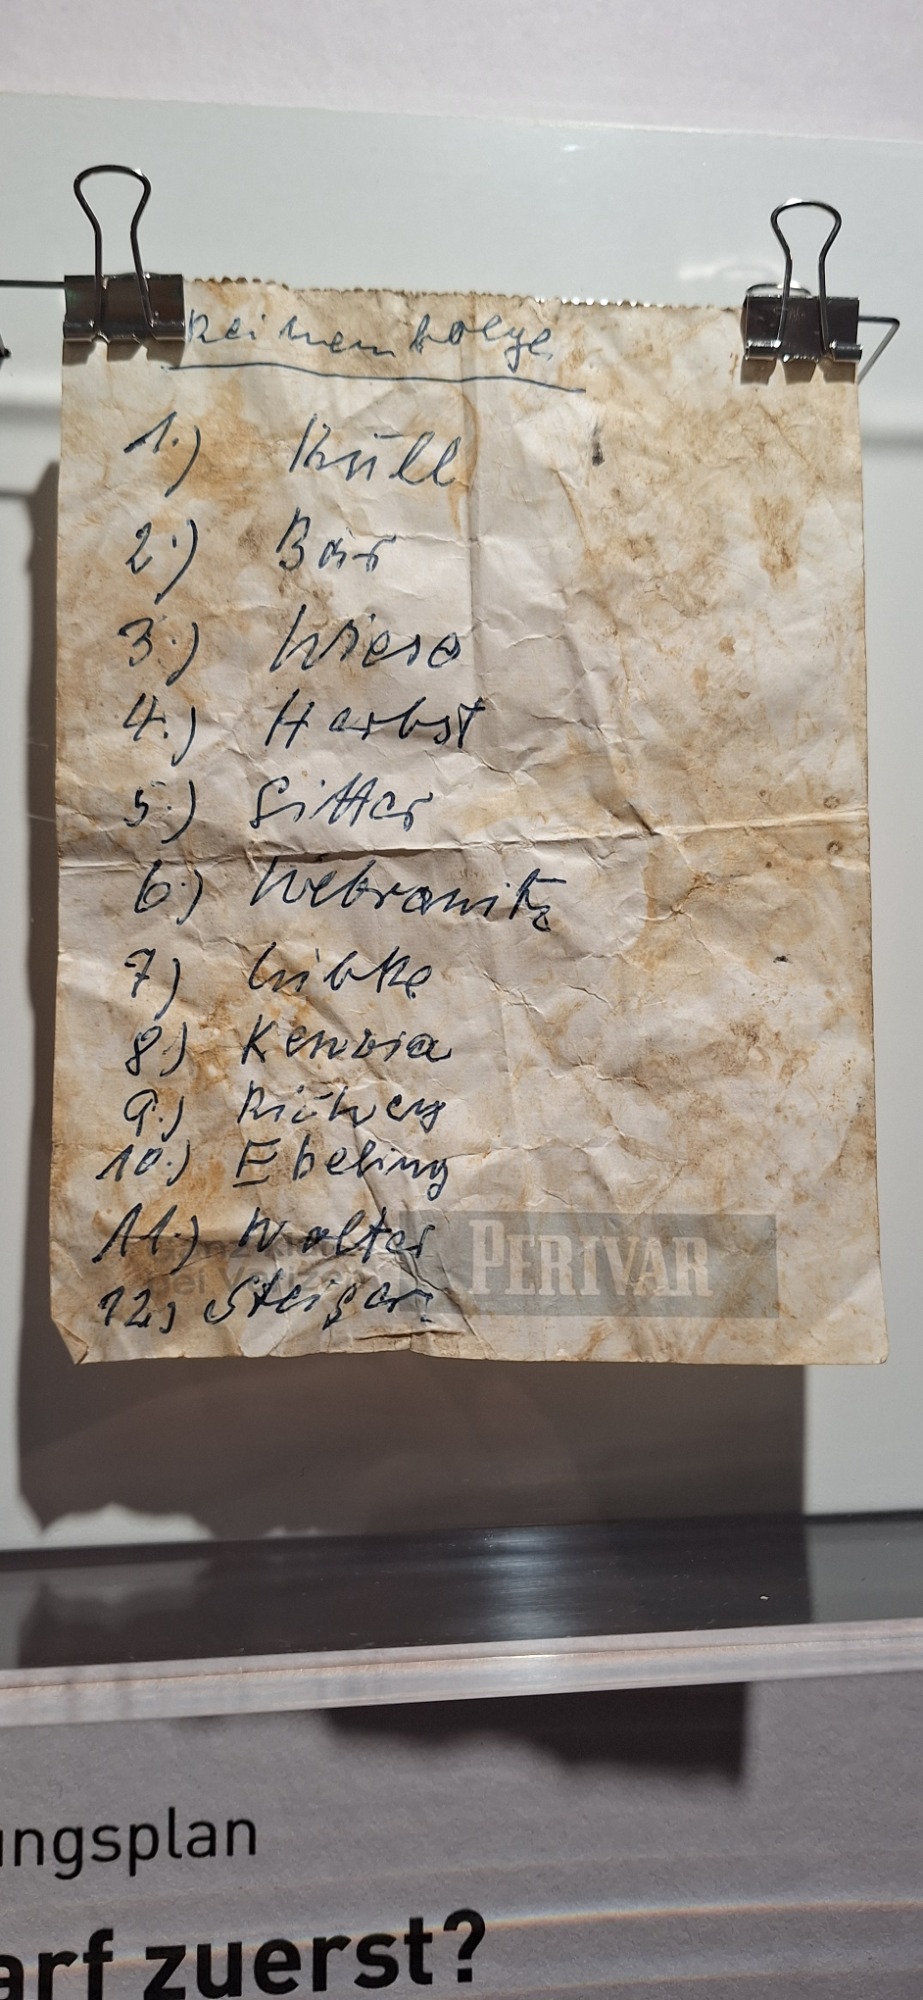 Reihenfolge
1.) Krüll
2.) Bär
3.) Wiese
4.) Herbst
5.) Sitter
6.) Webranitz
7) Lübke
8.)
9.)
10.) Ebeling
11.) Wolter
12.) Steiger
PERIVAR
ungsplan
arf zuerst?